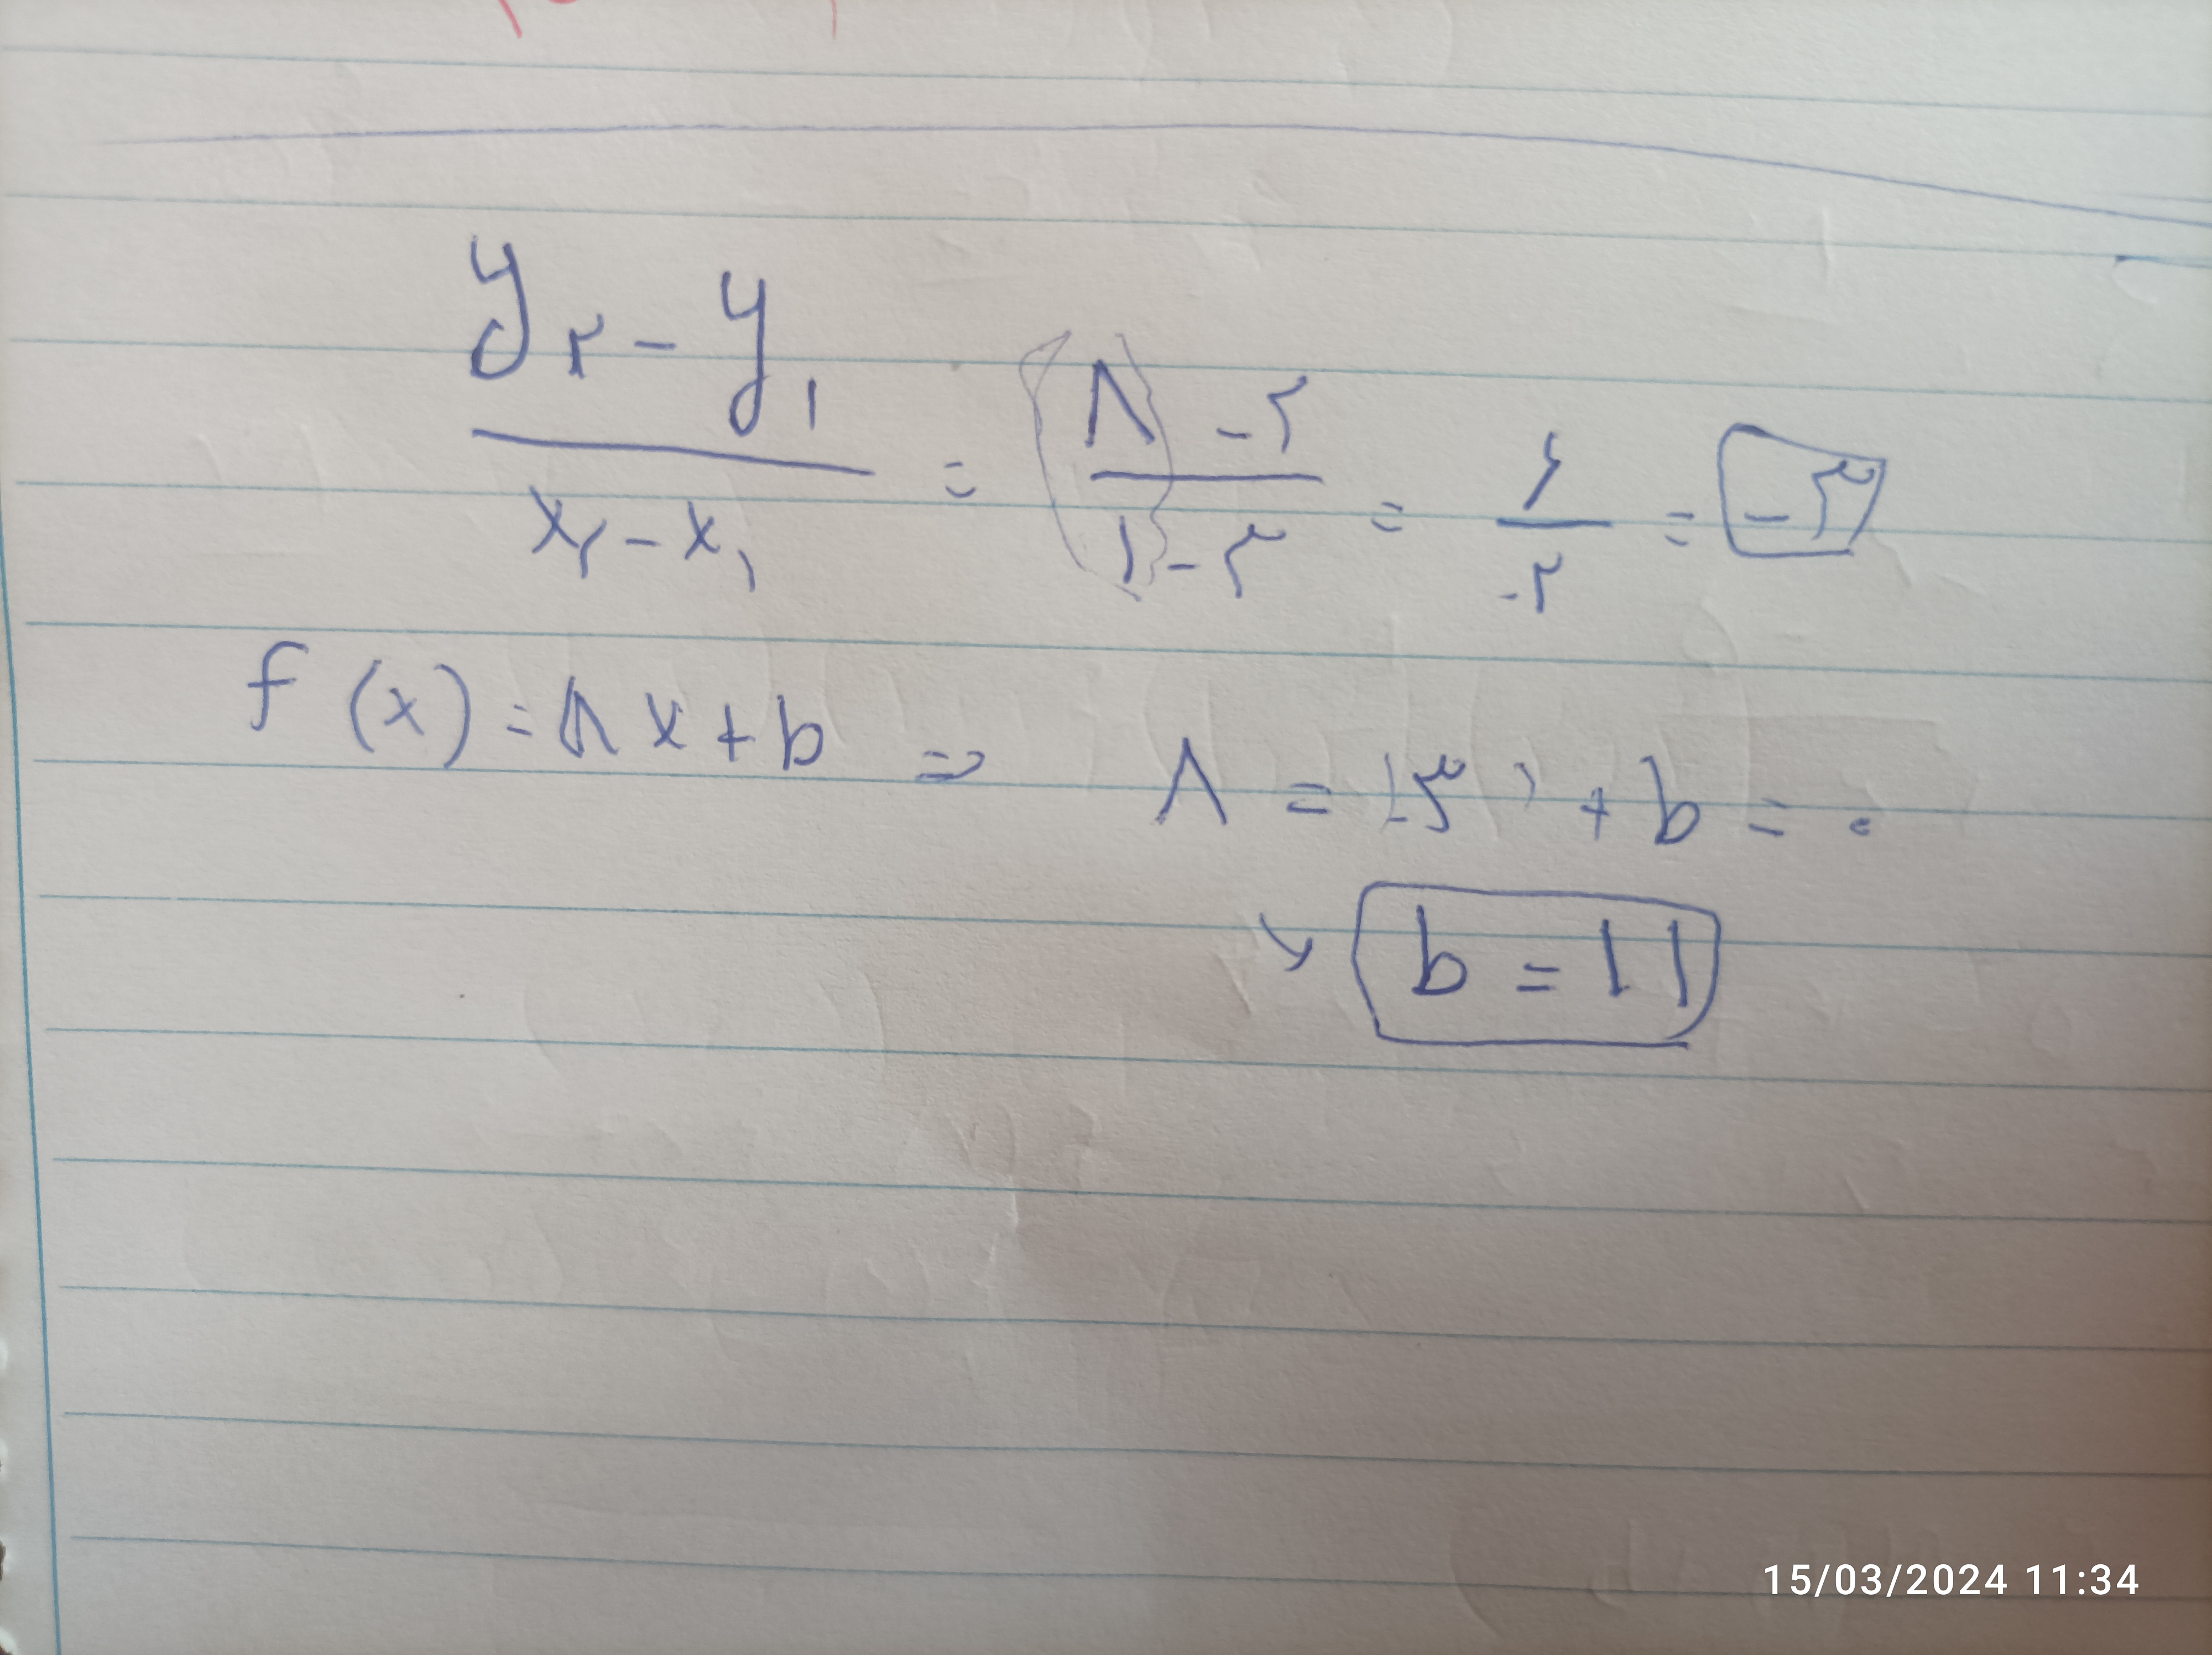 (y۲ - y۱) / (x۲ - x۱) = (۸ - ۲) / (۱ - ۳) = ۶ / -۲ = -۳
f(x) = ax + b ⇒ ۸ = (-۳ ) + b = ۰
↘ b = ۱۱
15/03/2024 11:34